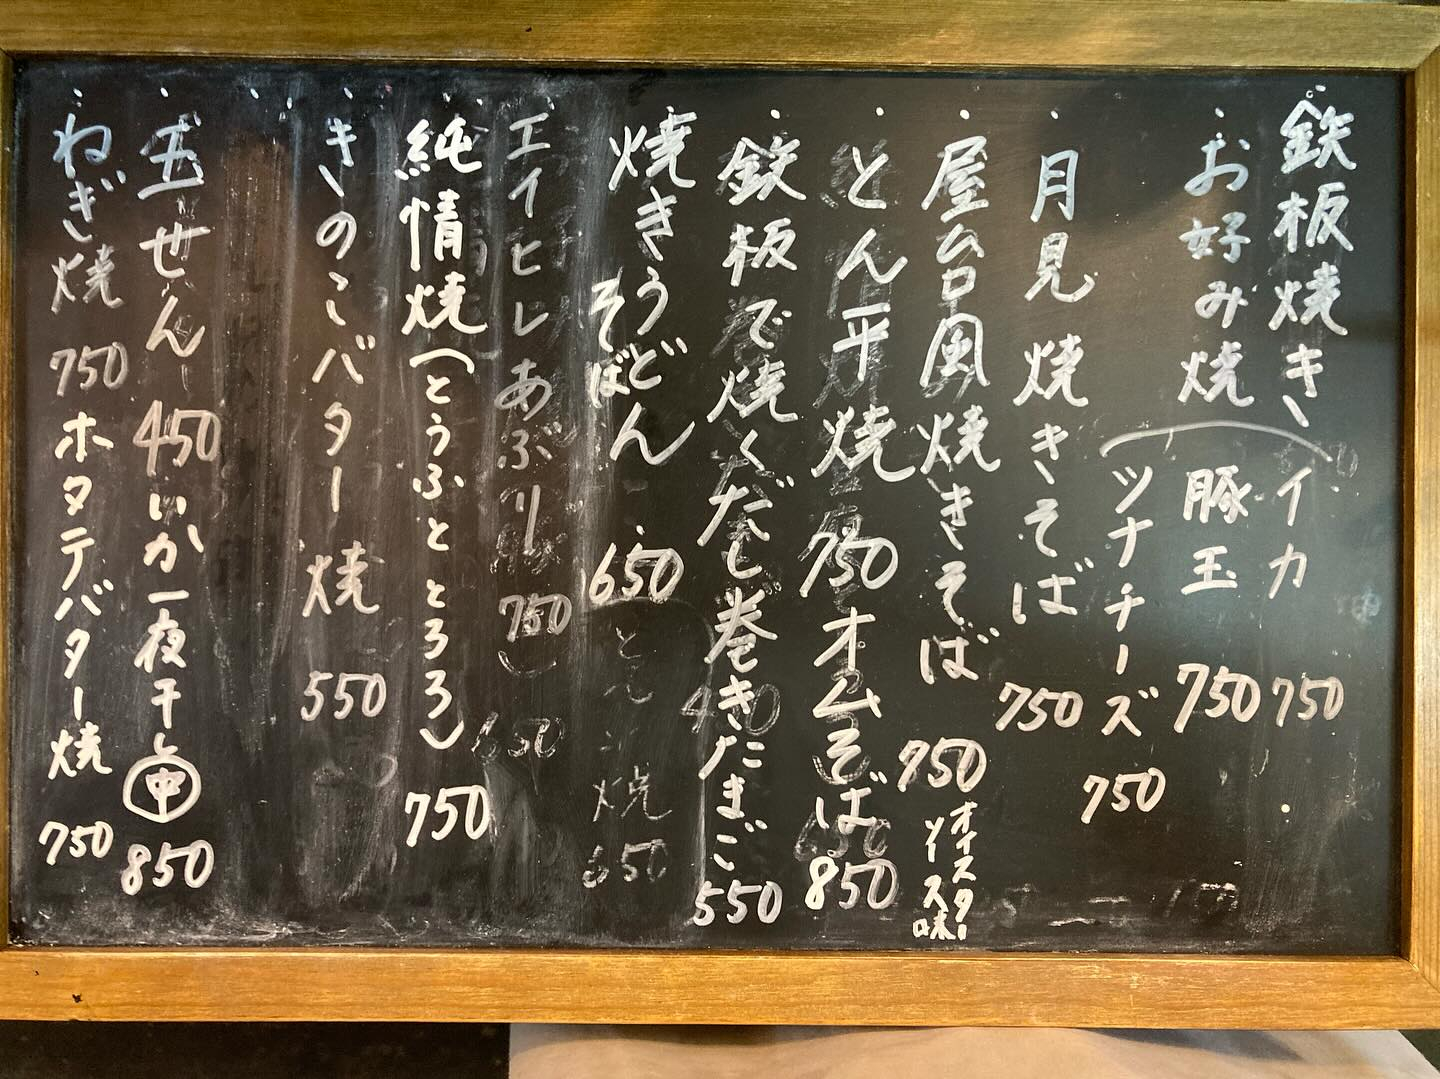 鉄板焼き
お好み焼(イカ 750
豚玉 750
ツナチーズ 750
月見焼きそば 750
屋台風焼きそば 750
オイスター
ソース味
とん平焼 750
オムそば 850
鉄板で焼くだし巻きたまご 550
焼きうどん 650
そばん
エイヒレあぶり 750
純情焼(とうふととろろ) 750
きのこバター焼 550
玉せん 450
いか一夜干し㊥ 850
ねぎ焼 750
ホタテバター焼 750